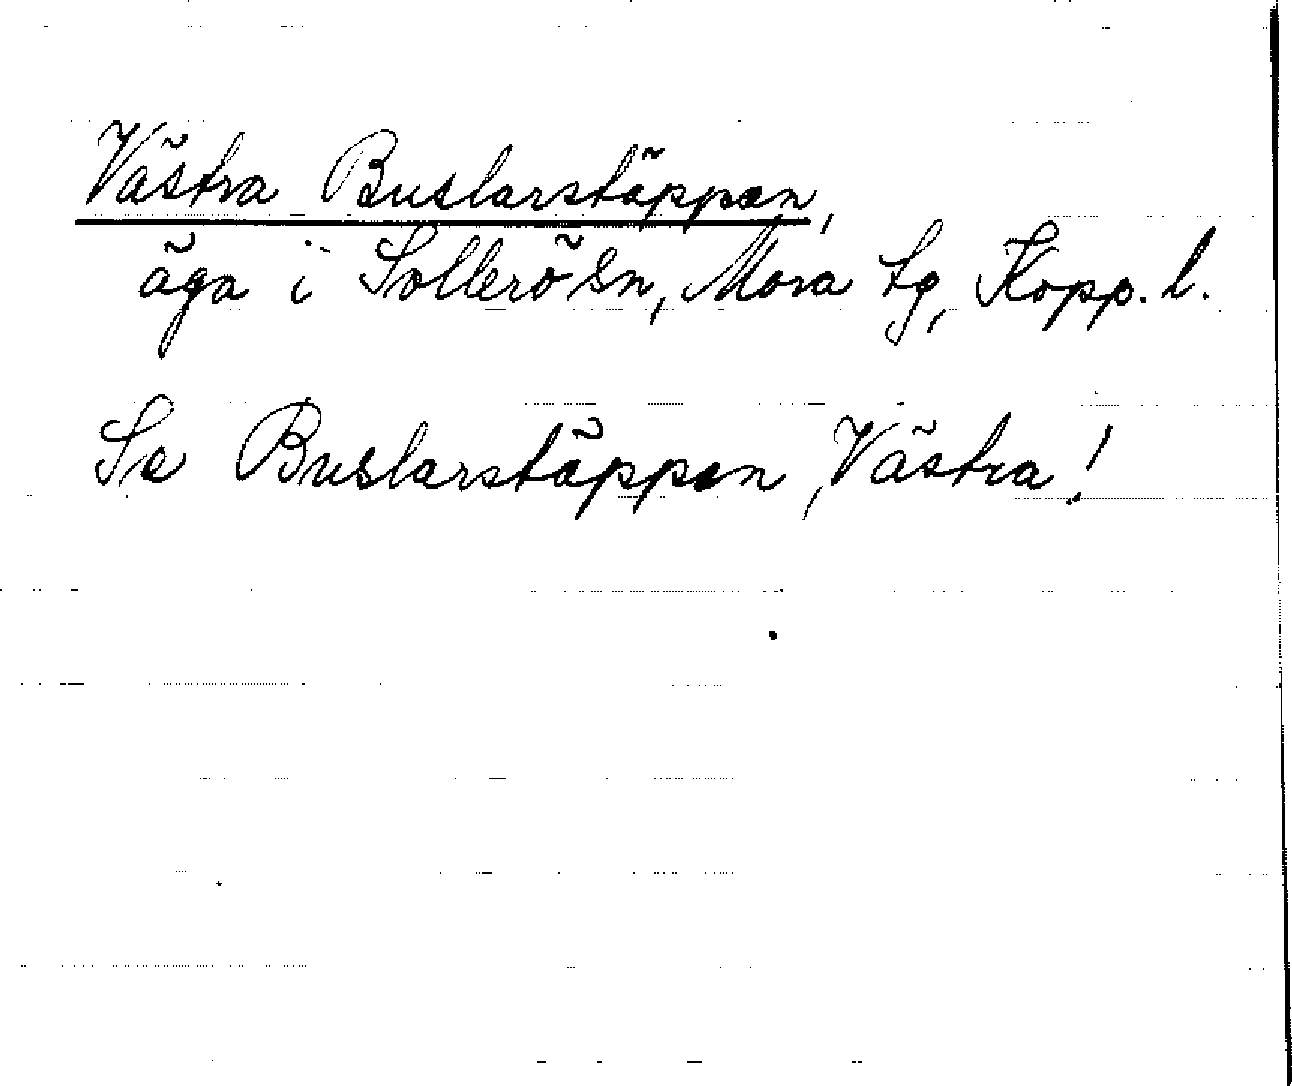 Västra Buslarstäppan,
äga i Sollerö sn, Mora tg, Kopp. l.
Se Buslarstäppan, Västra!